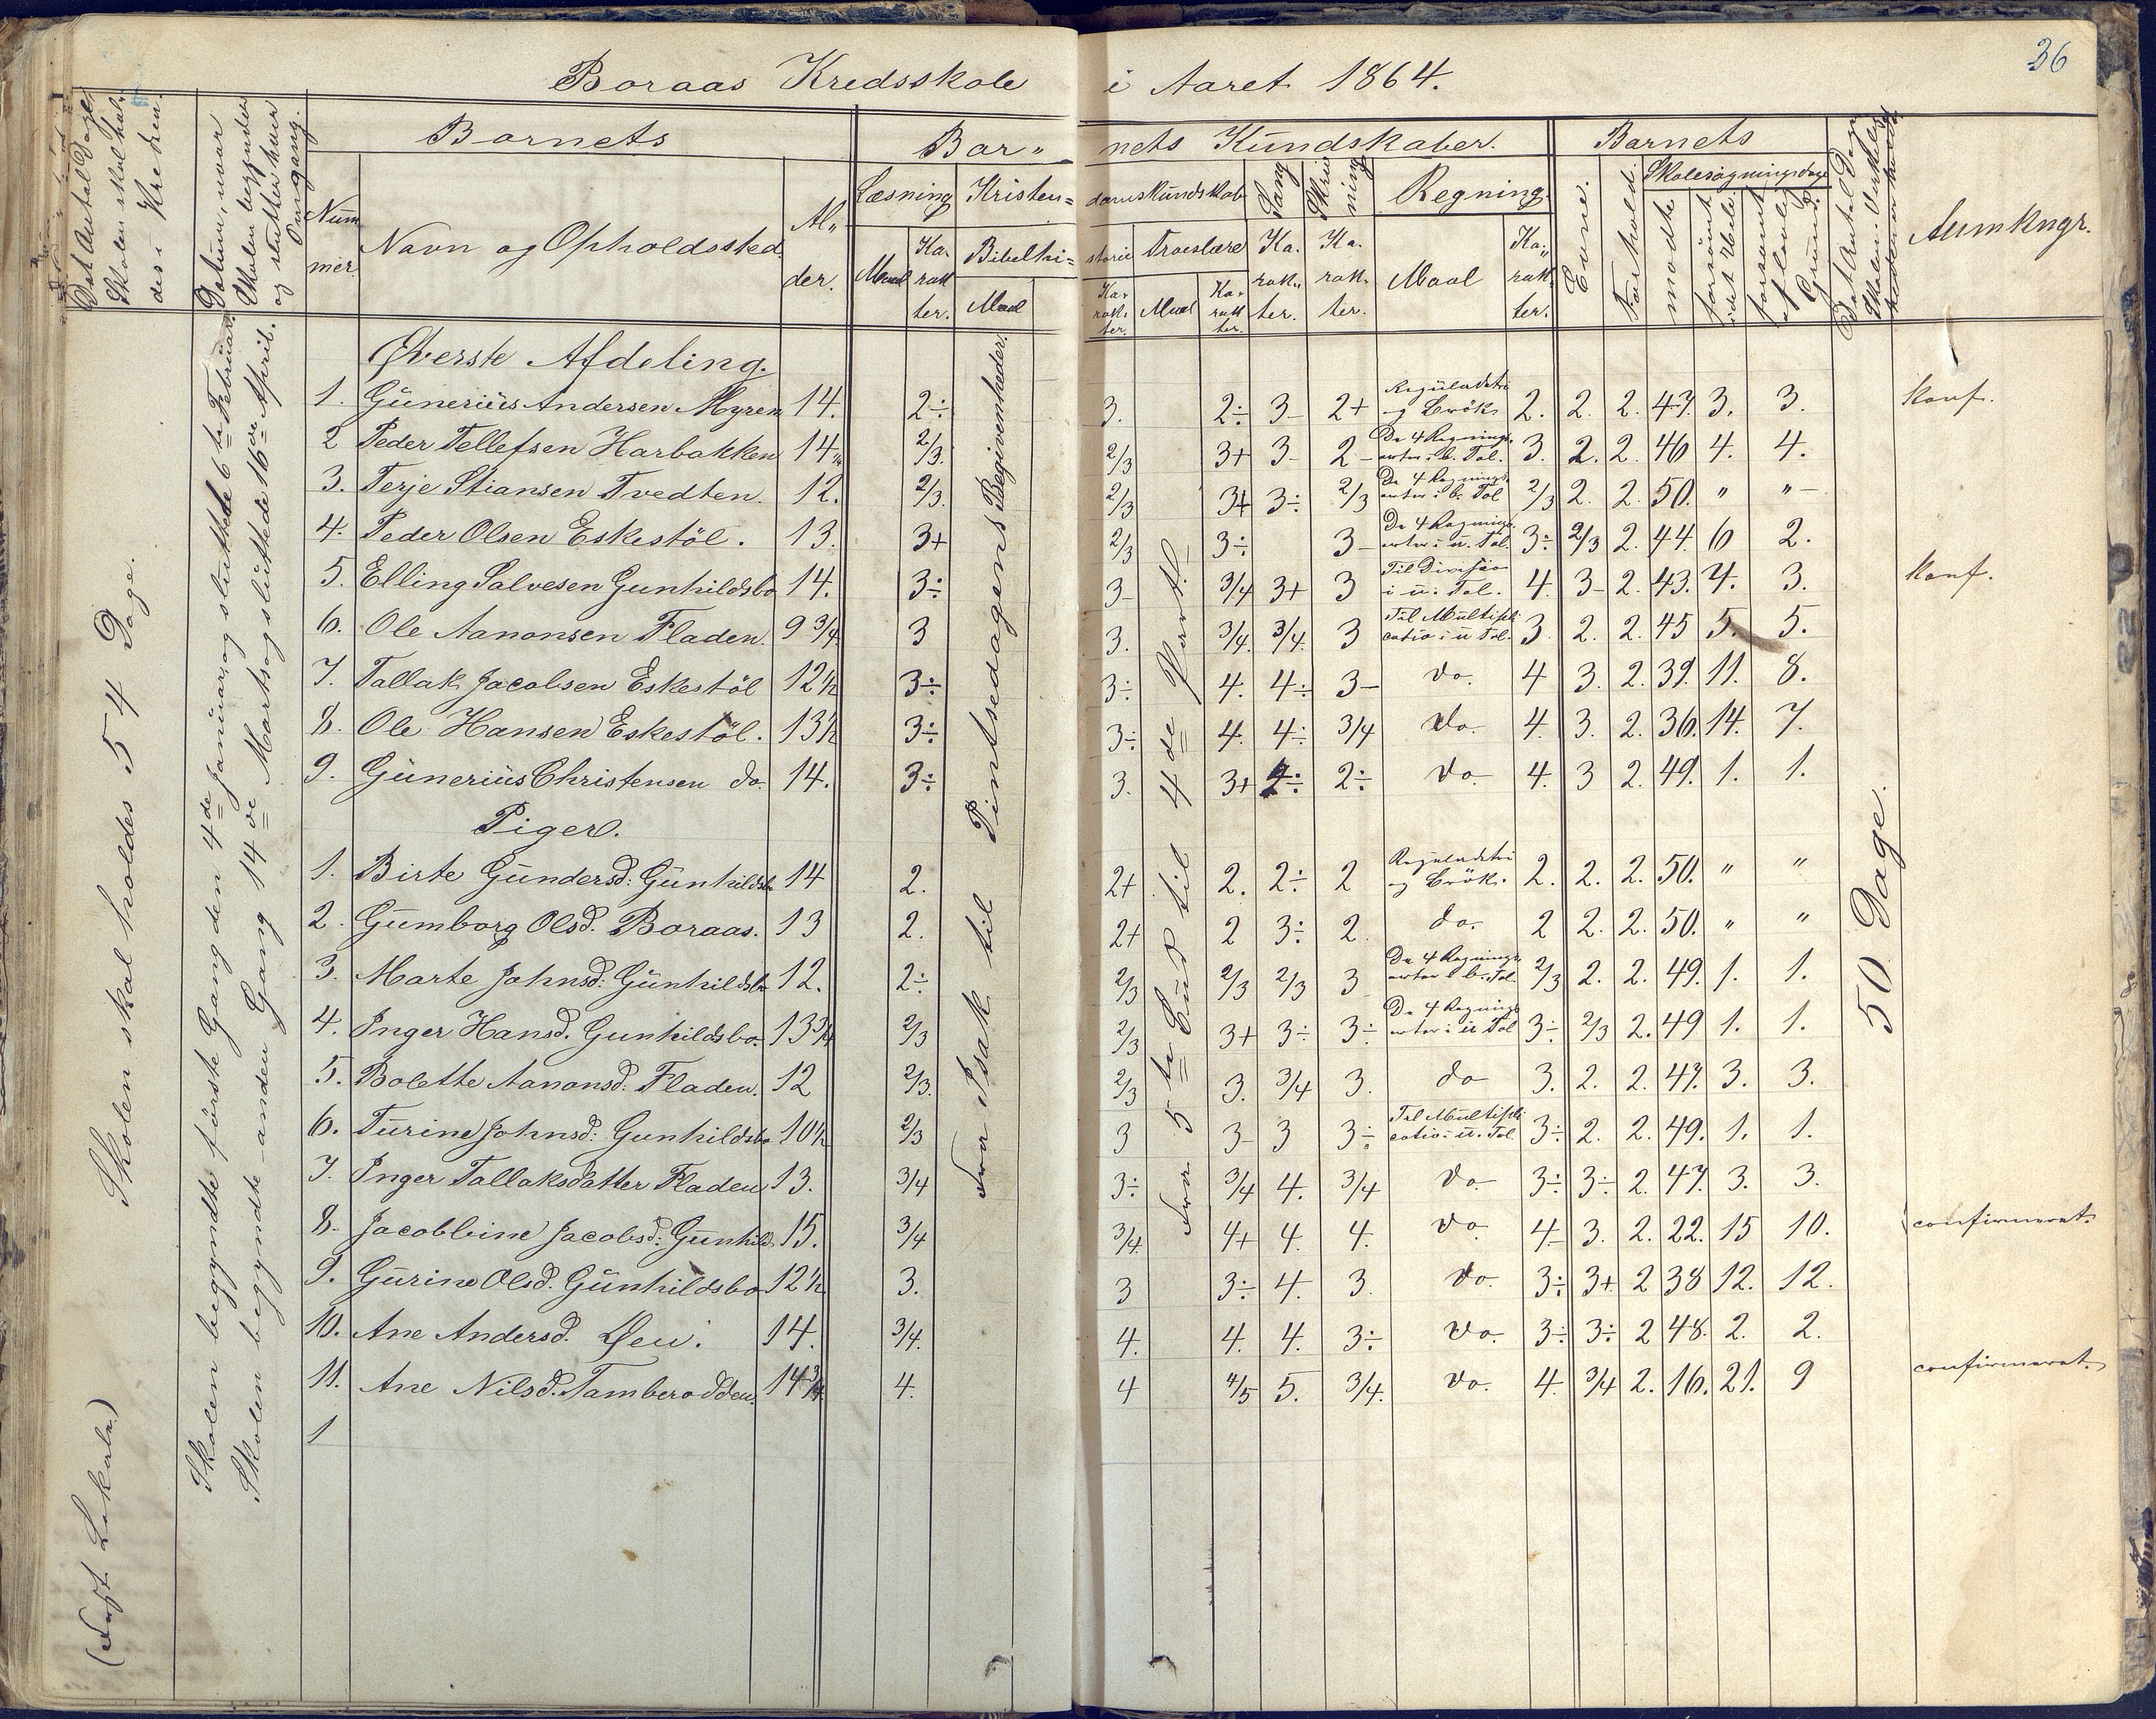 36
Boraas Kredsskole i Aaret 1864.
Det Antal Dage Skolen skal holdes i Kredsen.
Datum, naar Skolen begynder og slutter hver Omgang.
Barnets
Nummer.
Navn og Opholdssted.
Alder.
Barnets Kundskaber.
Læsning
Maal
Karakter.
Kristendomskundskab
Bibelhistorie
Maal
Karakter.
Troeslære
Maal
Karakter.
Sang
Karakter.
Skrivning
Karakter.
Regning.
Maal
Karakter.
Barnets
Evne.
Forhold.
Skolesøgningsdage
mødte
forsømt i det Hele
forsømt af lovlig Grund.
Det Antal Dage Skolen i Virkeligheden er holdt
Anmkngr.
(Fast Lokale.) Skolen skal holdes 54 Dage.
Skolen begyndte første Gang den 4de Januar, og sluttede 6te Februar.
Skolen begyndte anden Gang 14de Marts og sluttede 16de April.
Fra Isak til Pintsedagens Begivenheder.
Fra 5te Bud til 4de Part
50 Dage.
Øverste Afdeling.
1. Günerius Andersen Myren 14. 2÷ 3. 2÷ 3- 2+ Reguladetri og Brök. 2. 2. 2. 47. 3. 3. Konf.
2 Peder Tellefsen Harbakken 14 2/3. 2/3 3+ 3- 2- De 4 Regningsarter i b. Tal. 3. 2. 2. 46 4. 4.
3. Terje Stiansen Tvedten. 12. 2/3. 2/3 3+ 3÷ 2/3 De 4 Regningsarter i b. Tal 2/3 2. 2. 50. " "-
4. Peder Olsen Eskestöl. 13. 3+ 2/3 3÷ 3- De 4 Regningsarter i u. Tal. 3÷ 2/3 2. 44. 6 2.
5. Elling Salvesen Gunhildsbo 14. 3÷ 3- 3/4 3+ 3 Til Division i u. Tal. 4. 3- 2. 43. 7. 3. Konf.
6. Ole Aanonsen Fladen. 9 3/4. 3 3. 3/4. 3/4. 3 Til Multiplicatio i u Tal. 3. 2. 2. 45 5. 5.
7. Tallak Jacobsen Eskestöl 12½ 3÷ 3÷ 4. 4÷ 3- do. 4 3. 2. 39. 11. 8.
8. Ole Hansen Eskestöl. 13½ 3÷ 3÷ 4. 4÷ 3/4 do. 4. 3. 2. 36. 14. 7.
9. Günerius Christensen do. 14. 3÷ 3. 3+ 2÷ do. 4. 3 2. 49. 1. 1.
Piger.
1. Birte Gündersd: Günhildsbo 14 2. 2+ 2. 2÷ 2 Reguladetri og Brök. 2. 2. 2. 50. " "
2. Gümborg Olsd. Boraas. 13 2. 2+ 2 3÷ 2. do. 2 2. 2. 50. " "
3. Marte Johnsd: Günhildsbo 12. 2÷ 2/3 2/3 2/3 3 De 4 Regningsarter i b. Tal. 2/3 2. 2. 49. 1. 1.
4. Inger Hansd. Gunhildsbo. 13 3/4 2/3 2/3 3+ 3÷ 3÷ De 4 Regningsarter i u Tal 3÷ 2/3 2. 49 1. 1.
5. Bolette Aanonsd: Fladen. 12 2/3. 2/3 3. 3/4 3. do 3. 2. 2. 47. 3. 3.
6. Turine Johnsd: Gunhildsbo 10½ 2/3 3 3- 3 3÷ Til Multiplicatio i u. Tal. 3÷ 2. 2. 49. 1. 1.
7. Inger Tallaksdatter Fladen 13. 3/4 3÷ 3/4 4. 3/4 do. 3÷ 3÷ 2. 47. 3. 3.
8. Jacobbine Jacobsd: Günhilds 15. 3/4 3/4. 4+ 4. 4. do. 4- 3. 2. 22. 15 10. confirmeret.
9. Gürine Olsd. Günhildsbo 12½ 3. 3 3÷ 4. 3. do. 3÷ 3+ 2 38 12. 12.
10. Ane Andersd. Øen. 14. 3/4. 4. 4. 4. 3÷ do. 3÷ 3÷ 2 48. 2. 2.
11. Ane Nilsd. Tamberodden. 14 3/4 4. 4 4/5 5. 3/4. do. 4. 3/4 2. 16. 21. 9 confirmeret.
1